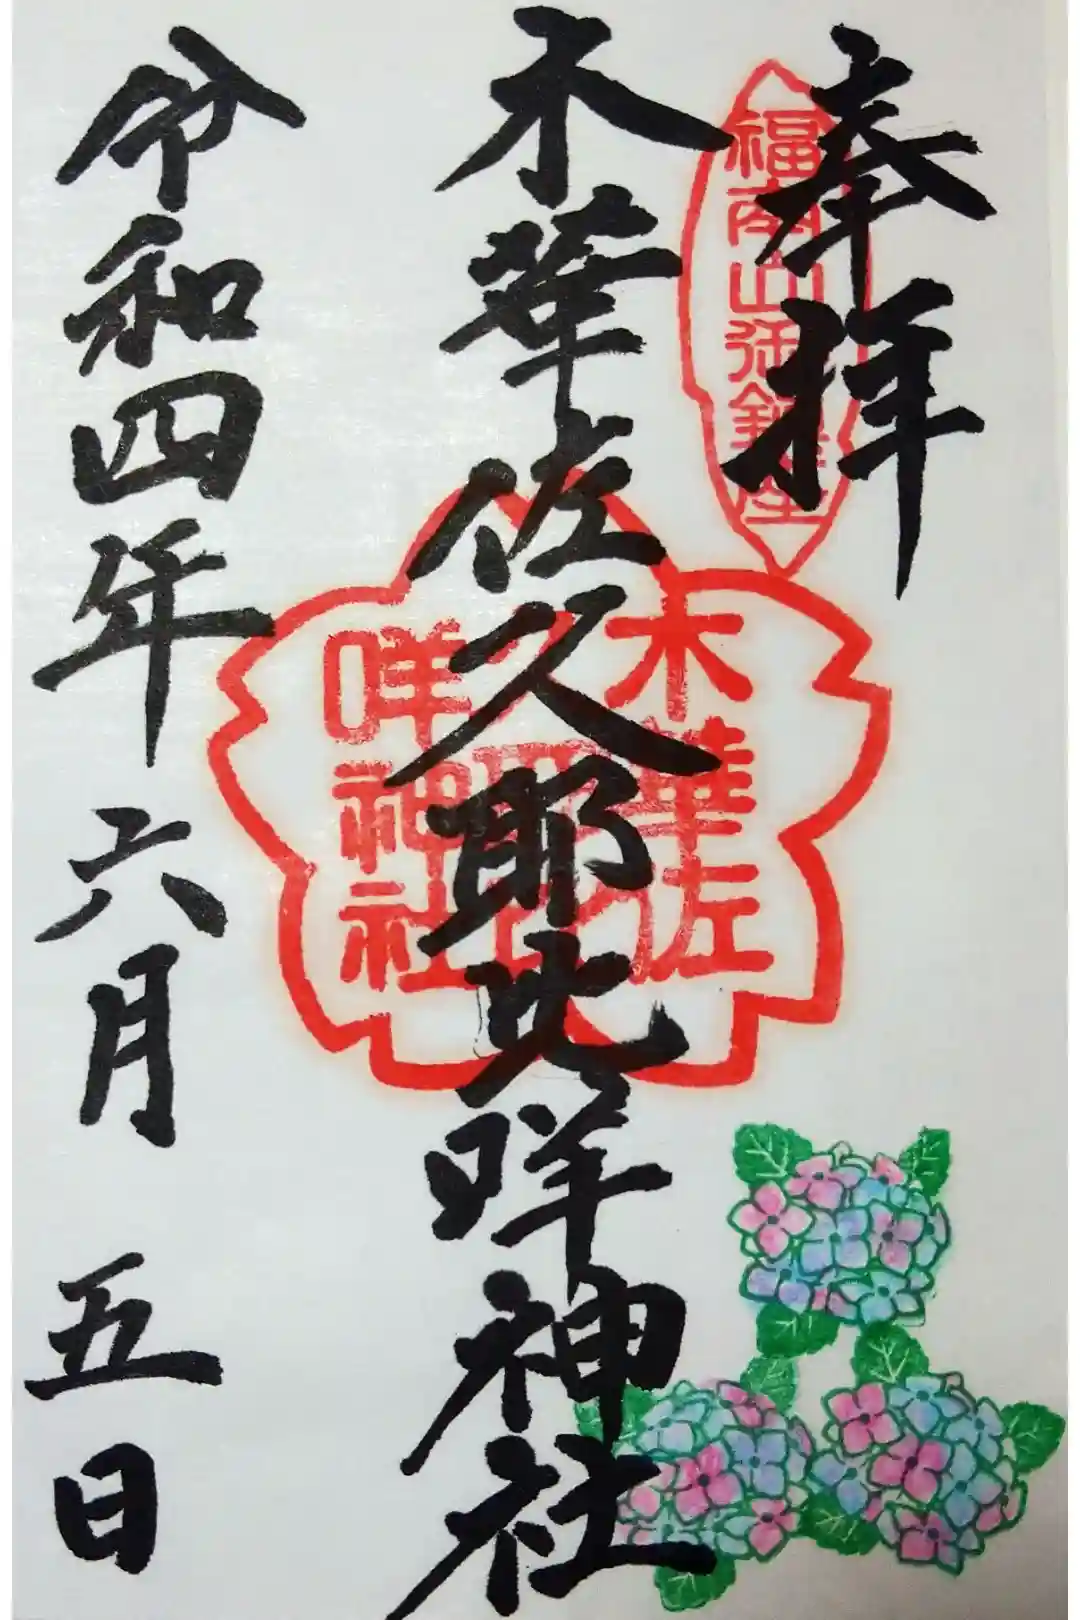 奉拝
福南山御鎮座
木華佐久耶比咩神社
木華佐
久耶比
咩神社
令和四年六月五日